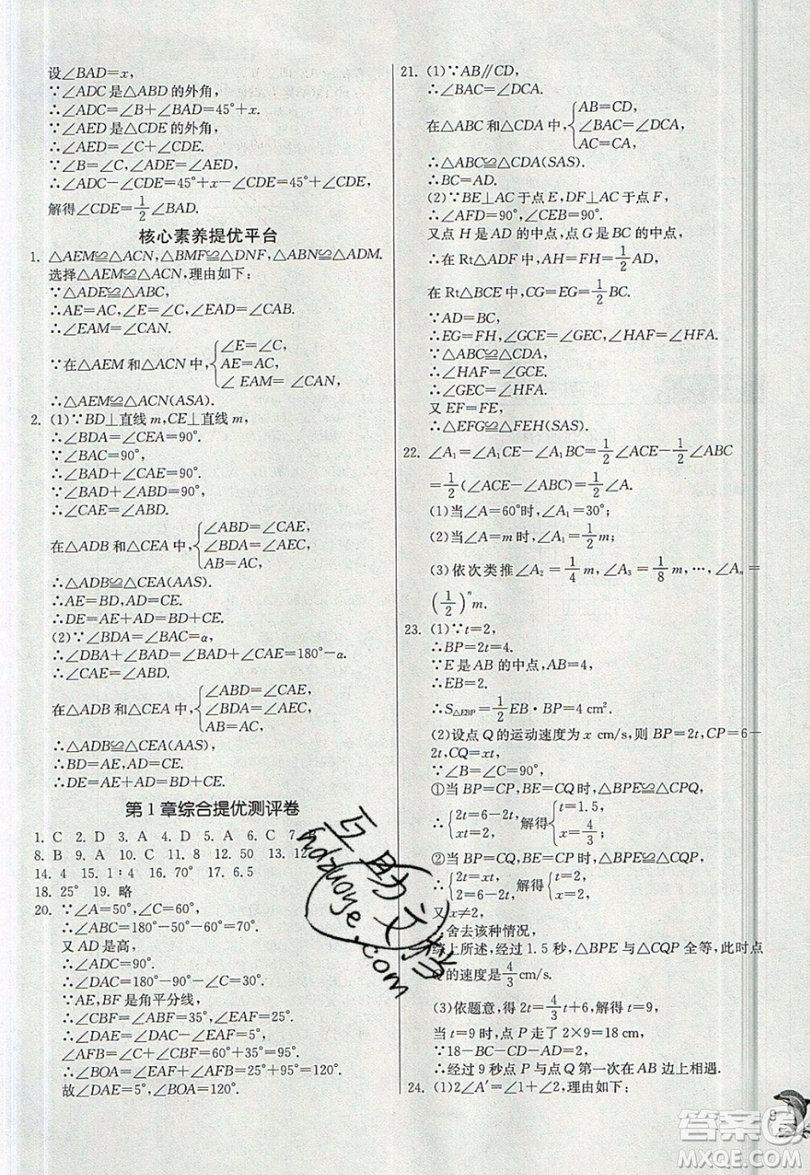 设∠BAD=x,
∵∠ADC是△ABD的外角,
∴∠ADC=∠B+∠BAD=45°+x.
∵∠AED是△CDE的外角,
∴∠AED=∠C+∠CDE.
∵∠B=∠C,∠ADE=∠AED,
∴∠ADC-∠CDE=45°+x-∠CDE=45°+∠CDE.
解得∠CDE=1/2∠BAD.
核心素养提优平台
1. △AEM≌△ACN,△BMF≌△DNF,△ABN≌△ADM.
选择△AEM≌△ACN,理由如下:
∵△ADE≌△ABC,
∴AE=AC,∠E=∠C,∠EAD=∠CAB.
∴∠EAM=∠CAN.
∵在△AEM和△ACN中,{∠E=∠C,
AE=AC,
∠EAM=∠CAN,
∴△AEM≌△ACN(ASA).
2. (1)∵BD⊥直线m,CE⊥直线m,
∴∠BDA=∠CEA=90°.
∵∠BAC=90°,
∴∠BAD+∠CAE=90°.
∵∠BAD+∠ABD=90°,
∴∠CAE=∠ABD.
在△ADB和△CEA中,{∠ABD=∠CAE,
∠BDA=∠AEC,
AB=AC,
∴△ADB≌△CEA(AAS).
∴AE=BD,AD=CE.
∴DE=AE+AD=BD+CE.
(2)∵∠BDA=∠BAC=α,
∴∠DBA+∠BAD=∠BAD+∠CAE=180°-α.
∴∠CAE=∠ABD.
在△ADB和△CEA中,{∠ABD=∠CAE,
∠BDA=∠AEC,
AB=AC,
∴△ADB≌△CEA(AAS).
∴AE=BD,AD=CE.
∴DE=AE+AD=BD+CE.
第1章综合提优测评卷
1. C 2. D 3. A 4. D 5. A 6. C 7.
8. B 9. A 10. C 11. 8 12. 50 13. 12
14. 4 15. 1∶4 16. 70° 17. 6.5
18. 25° 19. 略
20. ∵∠A=50°,∠C=60°,
∴∠ABC=180°-50°-60°=70°.
又AD是高,
∴∠ADC=90°.
∴∠DAC=180°-90°-∠C=30°.
∵AE,BF是角平分线,
∴∠CBF=∠ABF=35°,∠EAF=25°.
∴∠DAE=∠DAC-∠EAF=5°.
∠AFB=∠C+∠CBF=60°+35°=95°.
∴∠BOA=∠EAF+∠AFB=25°+95°=120°.
故∠DAE=5°,∠BOA=120°.
21. (1)∵AB∥CD,
∴∠BAC=∠DCA.
在△ABC和△CDA中,{AB=CD,
∠BAC=∠DCA,
AC=CA,
∴△ABC≌△CDA(SAS).
∴BC=AD.
(2)∵BE⊥AC于点E,DF⊥AC于点F,
∴∠AFD=90°,∠CEB=90°.
又点H是AD的中点,点G是BC的中点,
∴在Rt△AFD中,AH=FH=1/2AD,
在Rt△BCE中,CG=EG=1/2BC.
∵AD=BC,
∴EG=FH,∠GCE=∠GEC,∠HAF=∠HFA.
∵△ABC≌△CDA,
∴∠GCE=∠HAF.
∴∠GEC=∠HFA.
又EF=FE,
∴△EFG≌△FEH(SAS).
22. ∠A₁=∠A₁CE-∠A₁BC=1/2∠ACE-1/2∠ABC
=1/2(∠ACE-∠ABC)=1/2∠A.
(1)当∠A=60°时,∠A₁=30°;
(2)当∠A=m时,∠A₁=1/2m;
(3)依次类推∠A₂=1/4m,∠A₃=1/8m,…,∠Aₙ=
(1/2)ⁿm.
23. (1)∵t=2,
∴BP=2t=4.
∵E是AB的中点,
∴EB=2.
∴S△EBP=1/2EB·BP=4 cm².
(2)设点Q的运动速度为x cm/s,则BP=2t,CP=6-
2t,CQ=xt,
①当△BPE≌△CPQ,BP=CP,BE=CQ时,
∴{2t=6-2t,
2=xt,
解得{t=1.5,
x=4/3;
②当△BPE≌△CQP,BP=CQ,BE=CP时,
∴{2t=xt,
2=6-2t,
解得{t=2,
x=2,
又x≠2,
∴舍去该种情况,
综上所述,经过1.5秒,△BPE与△CQP全等,此时点
Q的速度是4/3 cm/s.
(3)依题意,得2t=4/3t+6,解得t=9,
当t=9时,点P走了2×9=18 cm,
∵18-BC-CD-AD=2,
∴经过9秒点P与点Q第一次在AB边上相遇.
24. (1)2∠A′=∠1+∠2,理由如下:
互助文档
hdzuoye.com
答案圈
MXQE.COM
9